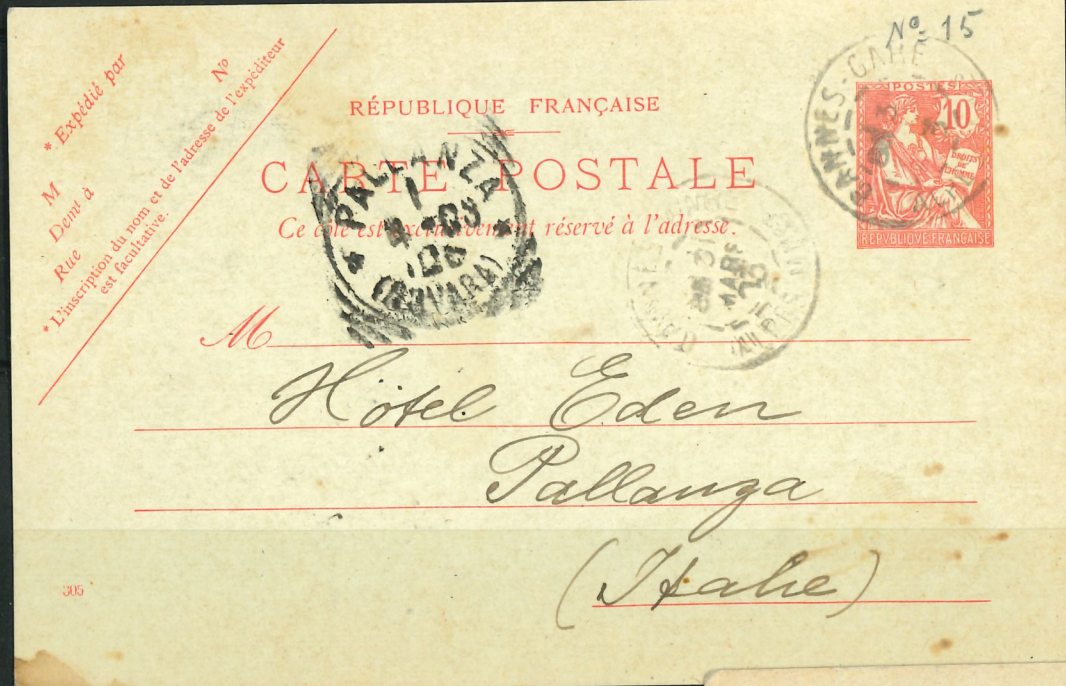 No 15
* Expédié par
No
M
Demt à
Rue
* L'inscription du nom et de l'adresse de l'expéditeur
est facultative.
RÉPUBLIQUE FRANÇAISE
CARTE POSTALE
Ce côté est exclusivement réservé à l'adresse.
POSTES
10
DROITS
DE
L'HOMME
REPVBLIQVE FRANÇAISE
CANNES-GARE
PALLANZA
(NOVARA)
M
Hôtel Eden
Pallanza
(Italie)
305